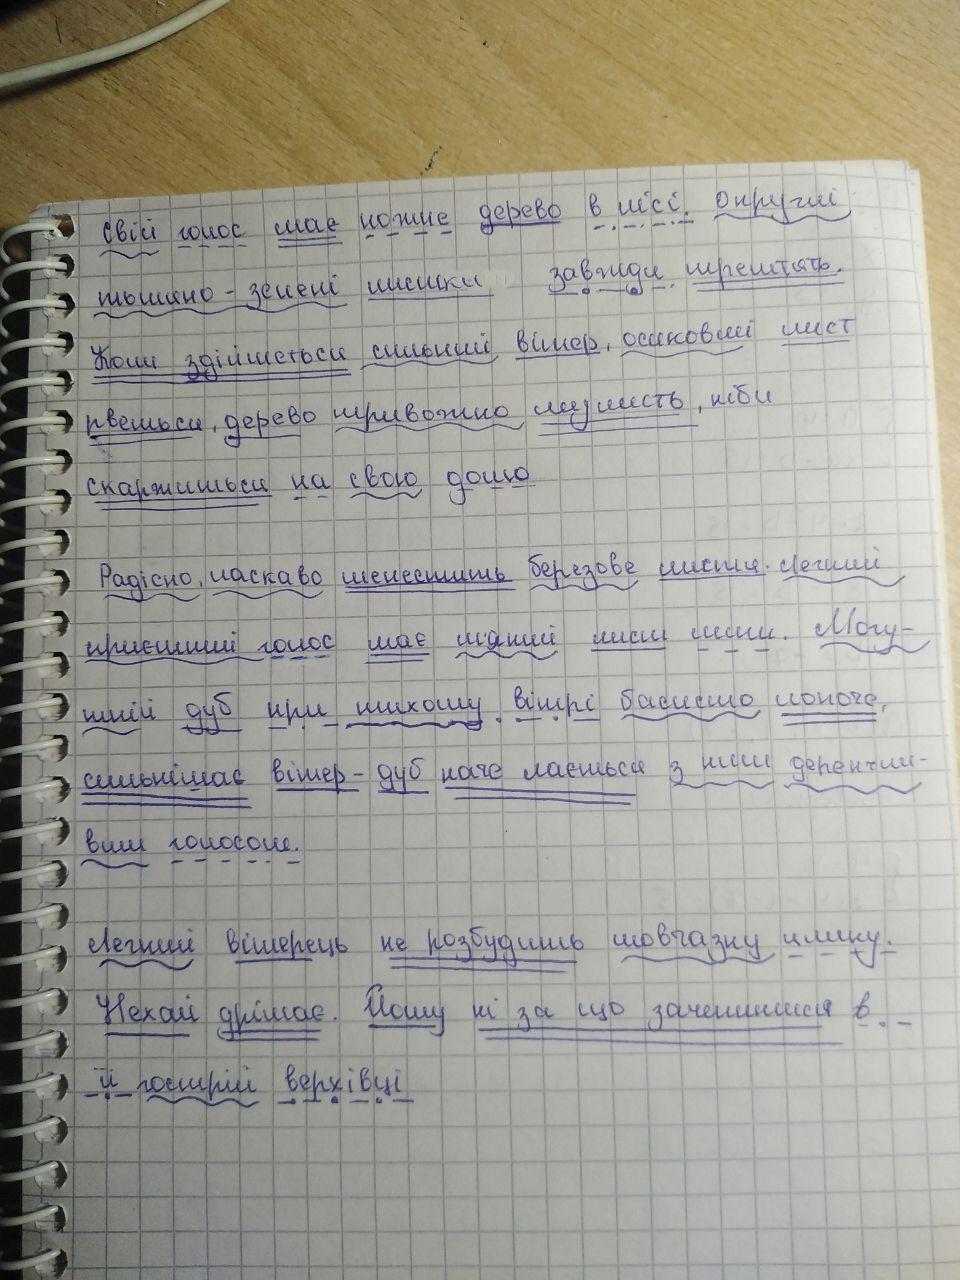 Свій голос має кожне дерево в лісі. Округлі
тьмяно-зелені листки завжди тремтять.
Коли здіймається сильний вітер, осиковий лист
рветься, дерево тривожно лиш, ніби
скаржиться на свою долю
Радісно, ласкаво шелестить березове листя. Легкий
приємний голос має ніжний лист липи. Могу-
тній дуб при тихому вітрі басисто лопоче,
сильнішає вітер - дуб наче лається з ним деренчли-
вим голосом.
Легкий вітерець не розбудить мовчазну ялинку.
Нехай дрімає. Йому ні за що зачепитися в
її гострій верхівці